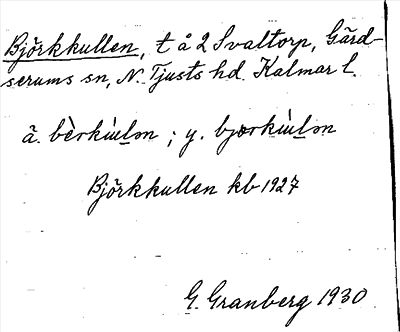 Björkkullen, t å 2 Svaltorp, Gärd-
serums sn, N. Tjusts hd. Kalmar l.
ä. bèrkùlən ; y. bjœrkùlən
Björkkullen kb 1927
G. Granberg 1930